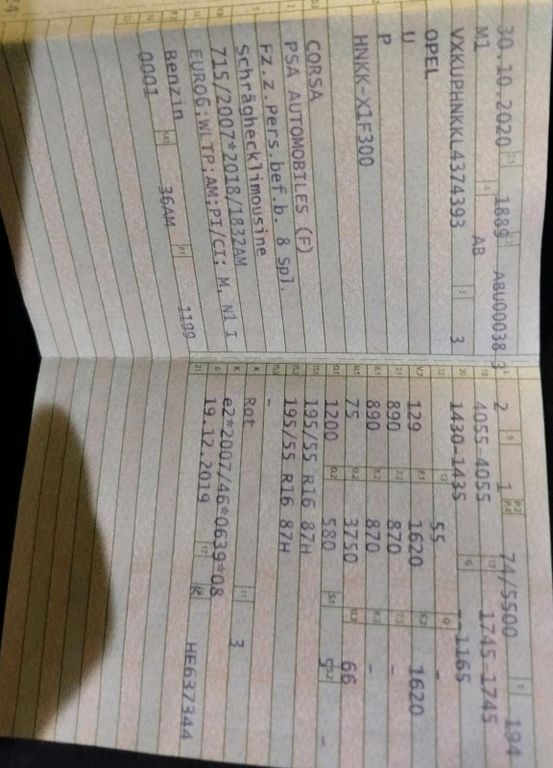 30.10.2020 1889 ABU00038 3
M1 AB
VXKUPHNKKL4374393 3
OPEL
U
P
HNKK-X1F300
CORSA
PSA AUTOMOBILES (F)
Fz.z.Pers.bef.b. 8 Spl.
Schräghecklimousine
715/2007*2018/1832AM
EURO6;WLTP;AM;PI/CI; M, N1 I
Benzin
0001 36AM 1199
2 1 74/5500 194
4055-4055 1745-1745
1430-1435 --1165
55 -
129 1620 1620
890 870 -
890 870 -
75 3750 66
1200 580 5 -
195/55 R16 87H
195/55 R16 87H
-
Rot 3
e2*2007/46*0639*08
19.12.2019 K HE637344